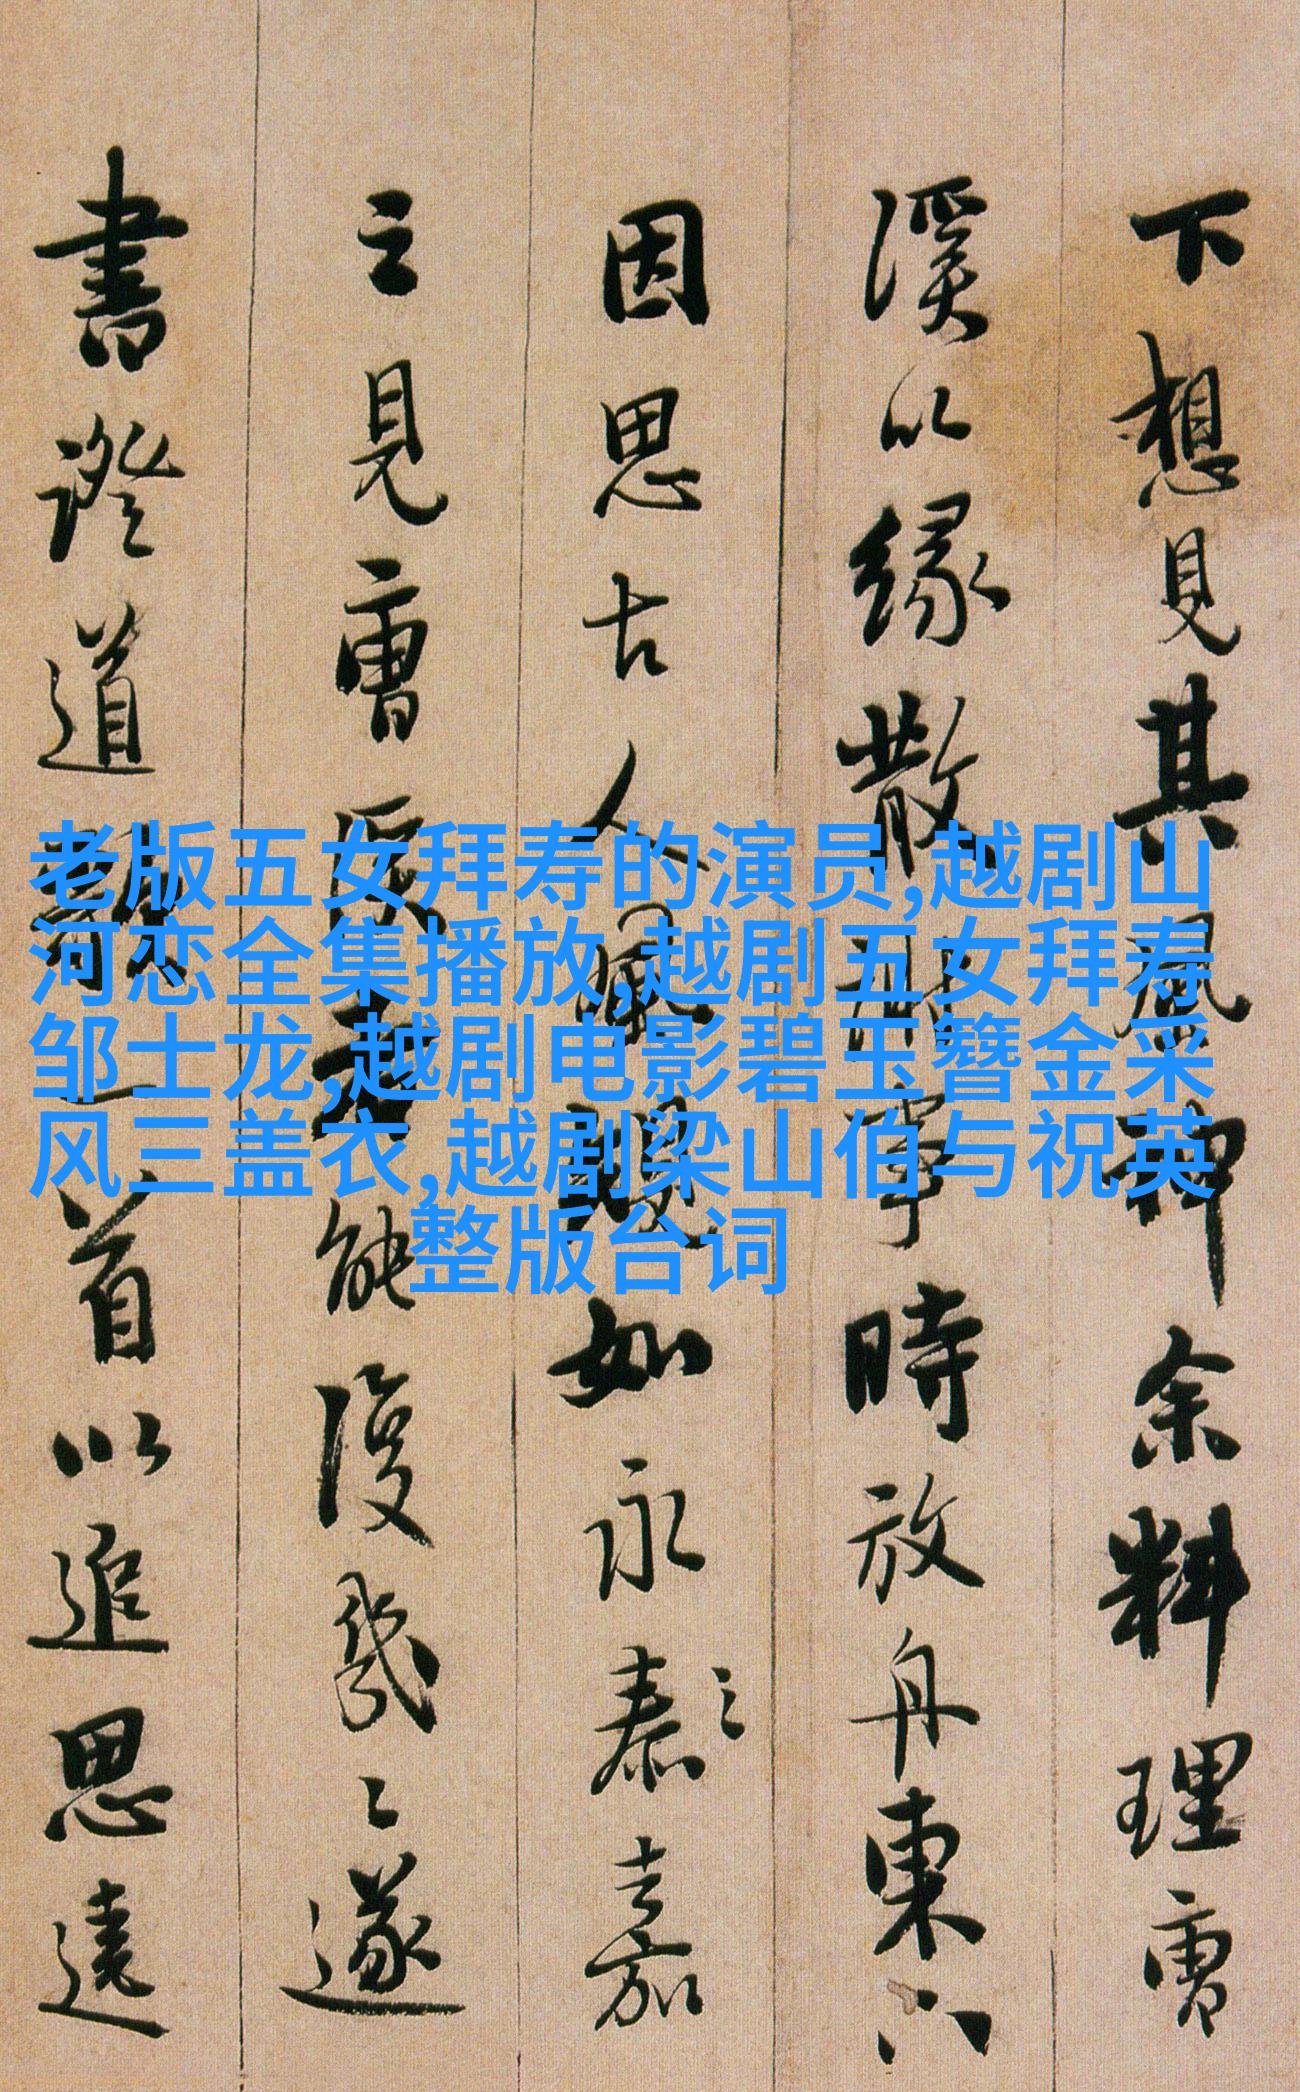 下想見其風神余料理曹
溪以緣散耐事時放舟東
因思古人風規如永泰之嘉
之見曹溪老能復幾々遂
書證道歌一首以追思遠
老版五女拜寿的演员,越剧山
河恋全集播放,越剧五女拜寿
邹士龙,越剧电影碧玉簪金采
风三盖衣,越剧梁山伯与祝英
整版台词